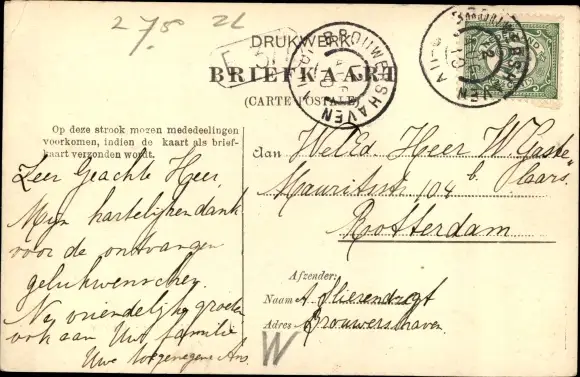 2750 2L
DRUKWERK
BRIEFKAART
(CARTE POSTALE)
BROUWERSHAVEN
BROUWERSHAVEN
Op deze strook mogen mededeelingen
voorkomen, indien de kaart als brief-
kaart verzonden wordt.
Zeer Geachte Heer,
Mijn hartelijken dank
voor de ontvangen
gelukwenschen.
Na vriendelijke groeten
ook aan Uw familie
Uwe toegenegene
Aan WelEd. Heer W
Mauritsstr 104 b.
Rotterdam
Afzender:
Naam A. Vlierendregt
Adres Brouwershaven.
W